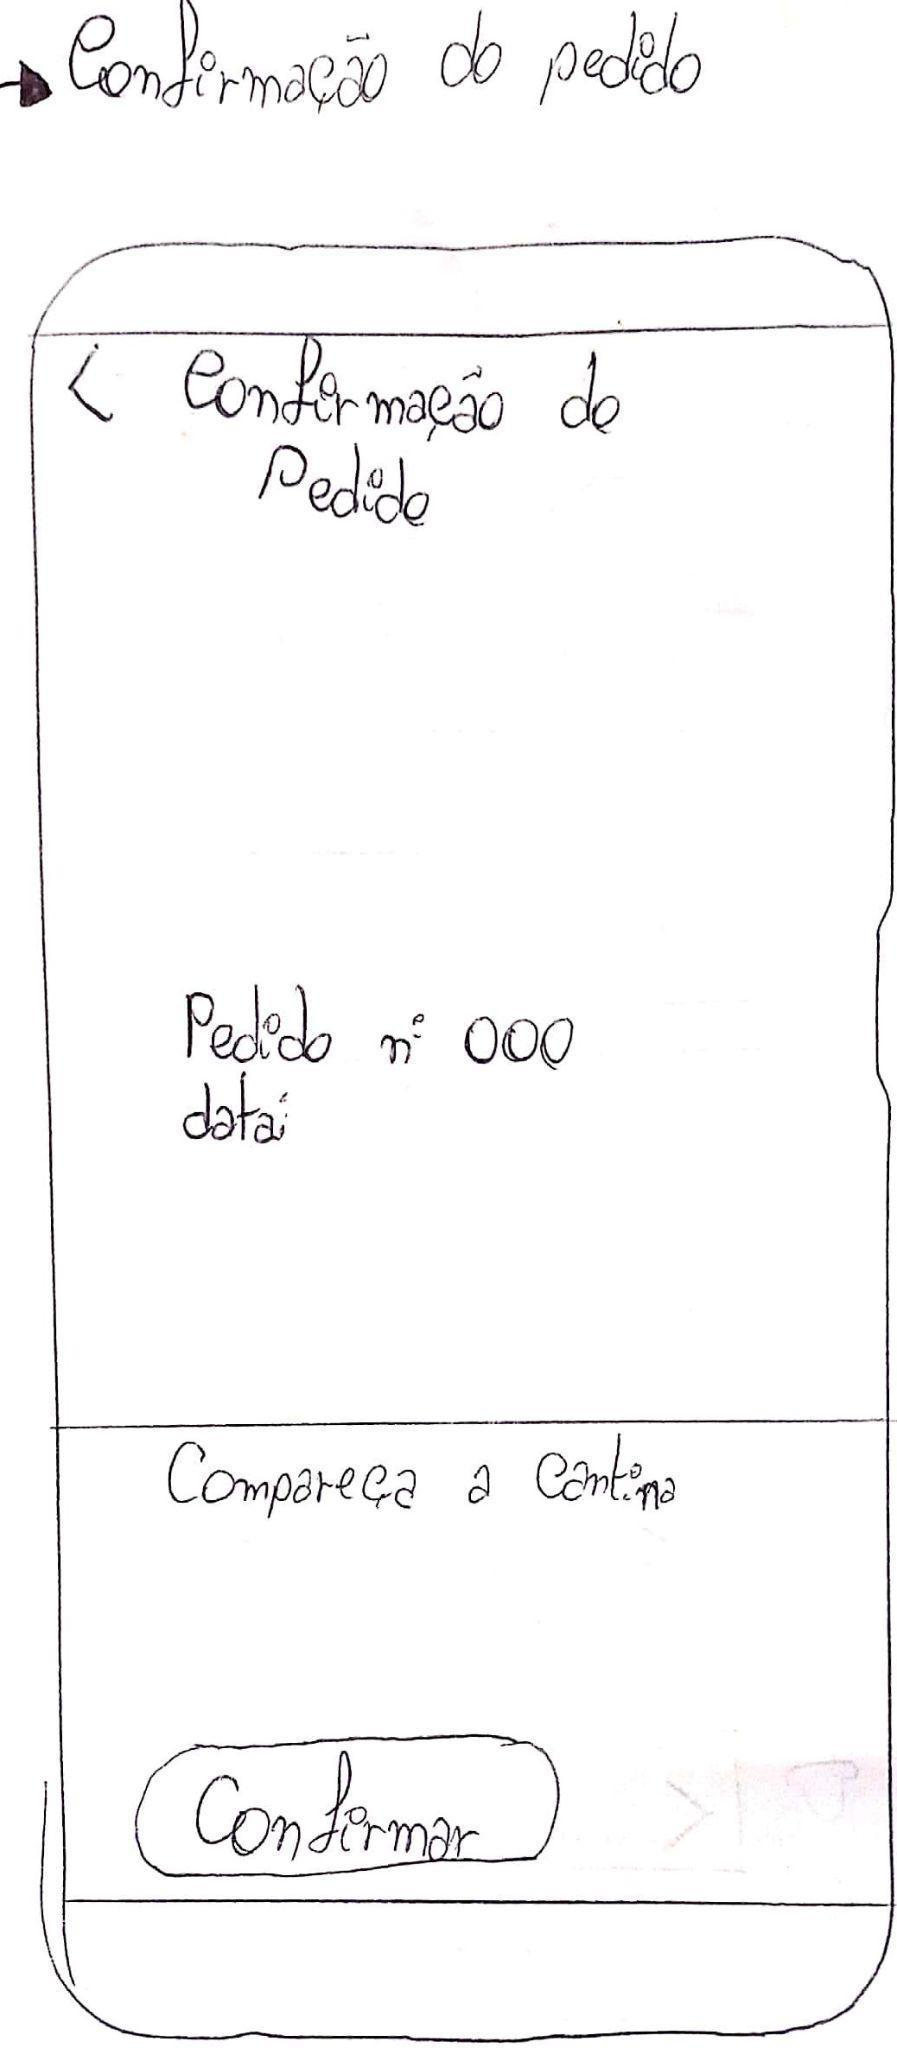 Confirmação do pedido
< Confirmação do
Pedido
Pedido nº 000
data:
Compareça a Cantina
Confirmar